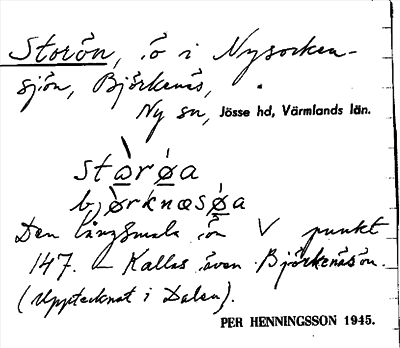 Storön, ö i Nysocken-
sjön, Björkenäs,
Ny sn, Jösse hd, Värmlands län.
stɷrøa
bjørknæsøa
Den långsmala ön V punkt
147. – Kallas även Björkenäsön.
(Upptecknat i Dalen).
PER HENNINGSSON 1945.